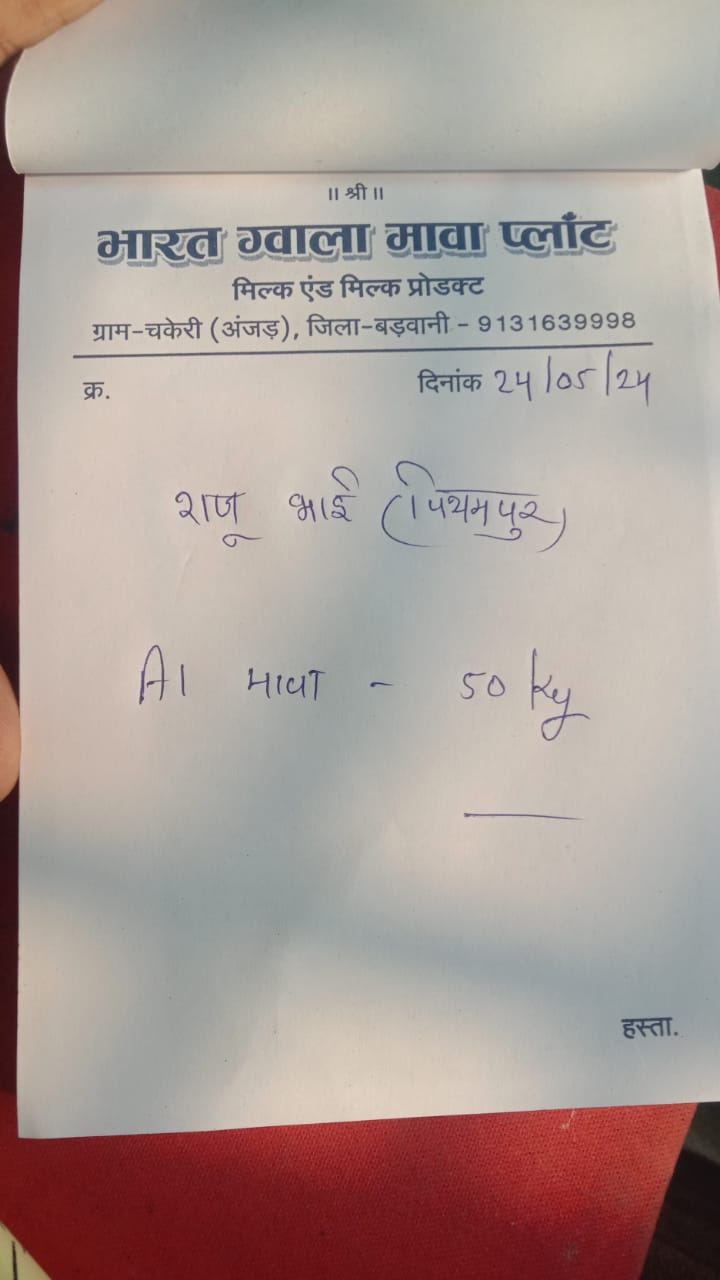 ॥ श्री ॥
भारत ग्वाला मावा प्लाँट
मिल्क एंड मिल्क प्रोडक्ट
ग्राम-चकेरी (अंजड़), जिला-बड़वानी - 9131639998
क्र. दिनांक 24/05/24
राजू भाई (पिथमपुर)
A1 मावा - 50 kg
हस्ता.